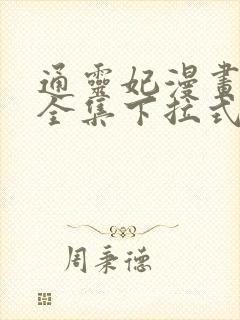 通靈妃漫畫
全集下拉式
周秉德